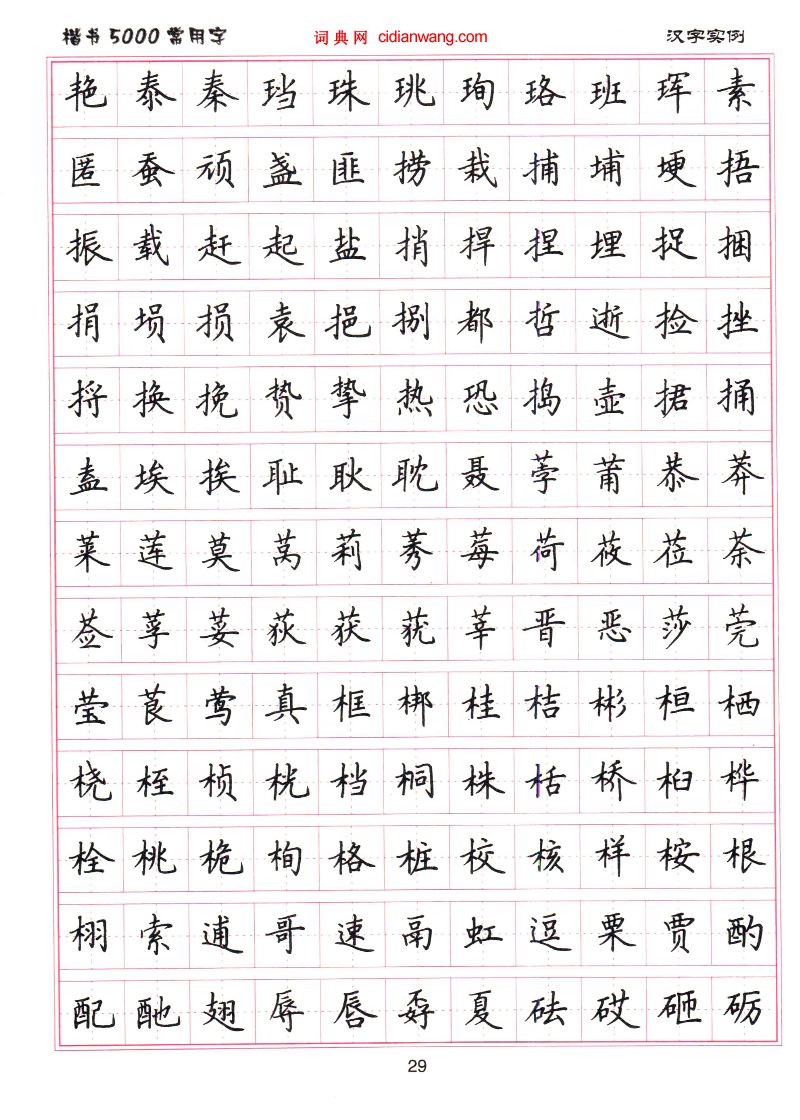 楷书 5000 常用字 词典网 cidianwang.com 汉字实例
艳 泰 秦 珰 珠 珧 珣 珞 班 珲 素
匿 蚕 顽 盏 匪 捞 栽 捕 埔 埂 捂
振 载 赶 起 盐 捎 捍 捏 埋 捉 捆
捐 埙 损 袁 挹 捌 都 哲 逝 捡 挫
捋 换 挽 贽 挚 热 恐 捣 壶 捃 捅
盍 埃 挨 耻 耿 耽 聂 荸 莆 恭 莽
莱 莲 莫 莴 莉 莠 莓 荷 莜 莅 荼
莶 莩 荽 荻 获 莸 莘 晋 恶 莎 莞
莹 莨 莺 真 框 梆 桂 桔 彬 桓 栖
桡 桎 桢 桄 档 桐 株 栝 桥 桕 桦
栓 桃 桅 栒 格 桩 校 核 样 桉 根
栩 索 逋 哥 速 鬲 虹 逗 栗 贾 酌
配 酏 翅 辱 唇 孬 夏 砝 砹 砸 砺
29